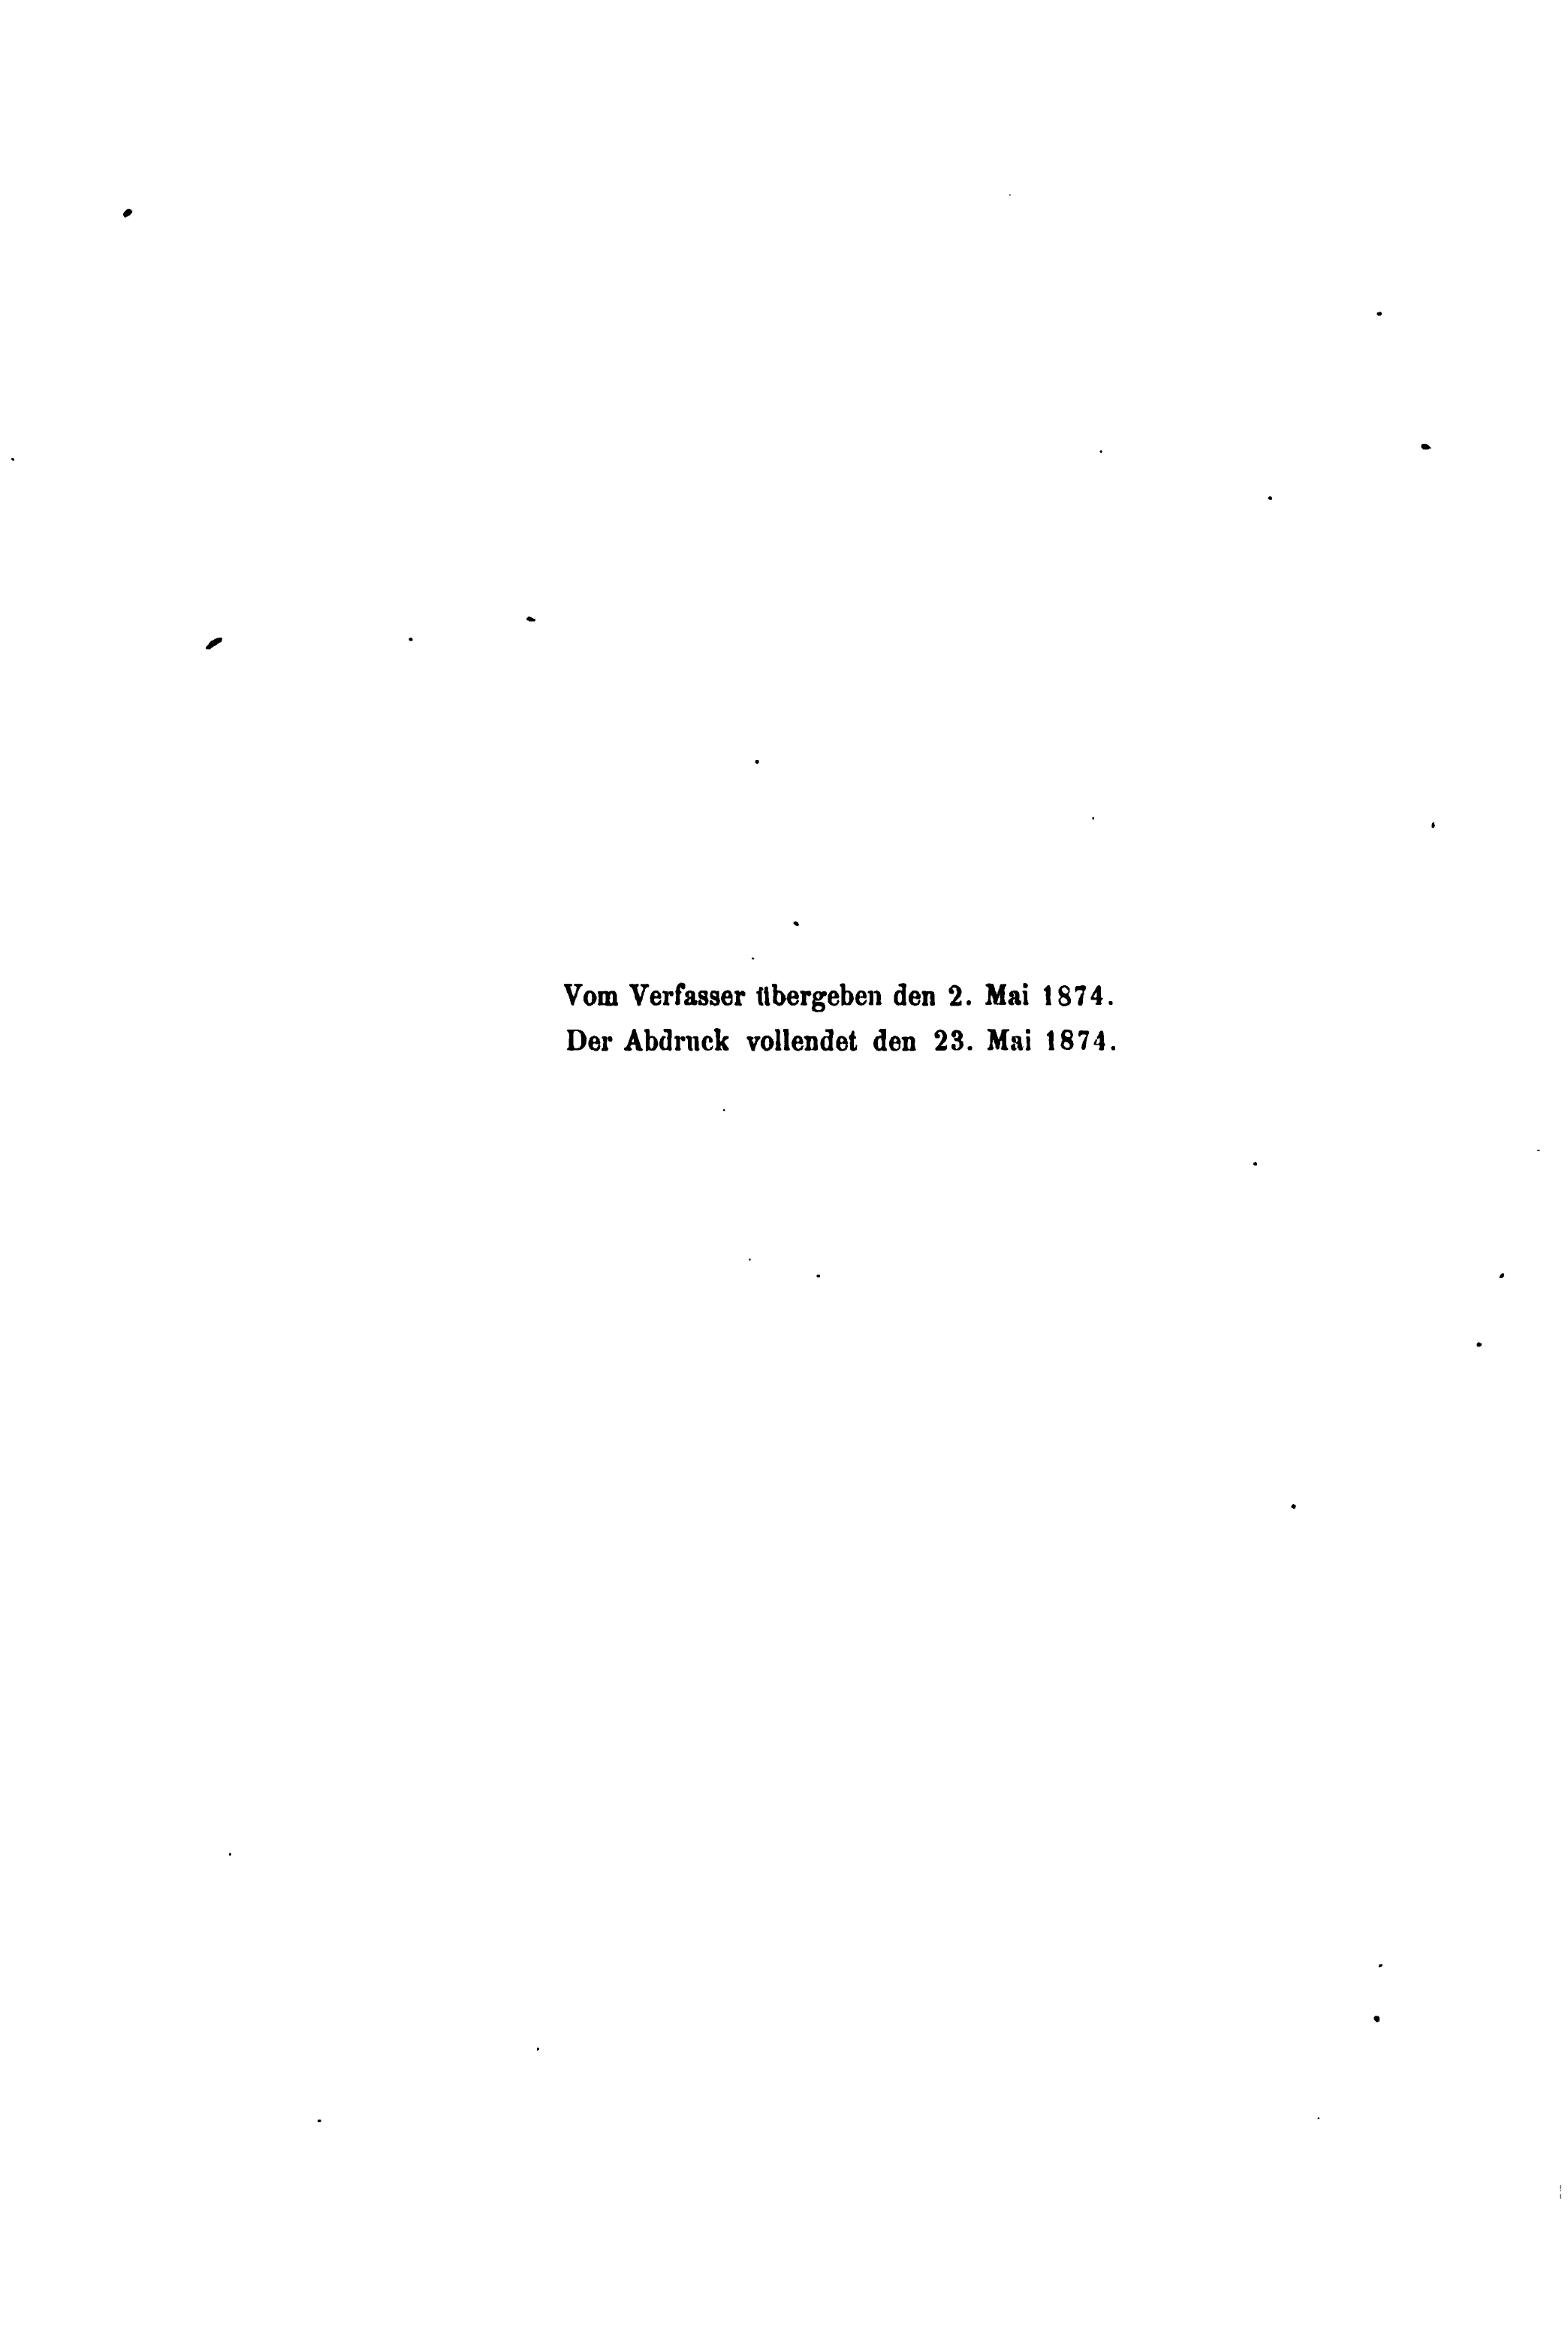 Vom Verfasser übergeben den 2. Mai 1874.
Der Abdruck vollendet den 23. Mai 1874.